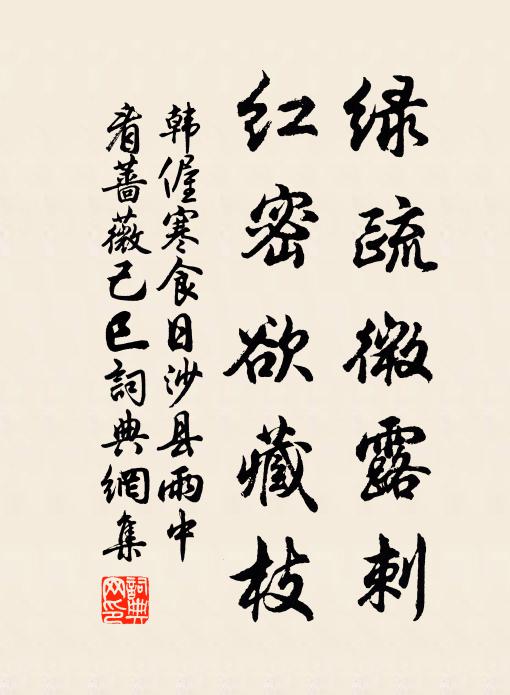 绿疏微露刺
红密欲藏枝
韩偓寒食日沙县雨中
看蔷薇己巳词典網集
詞典网印